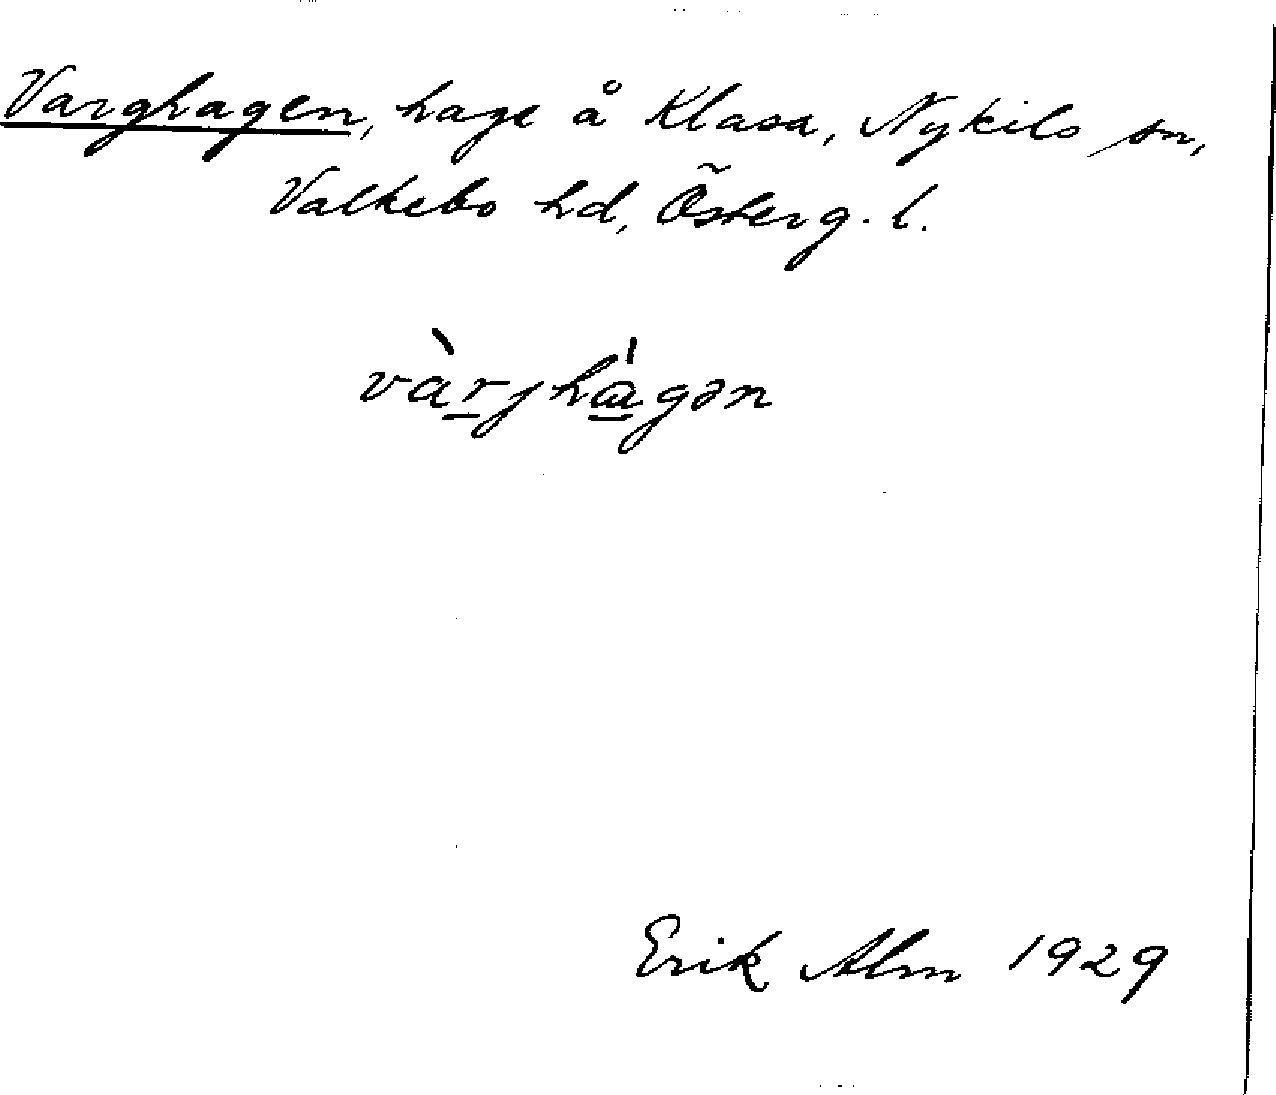 Varghagen, hage å Klasa, Nykils sn,
Valkebo hd, Österg. l.
vàrjhágən
Erik Alm 1929